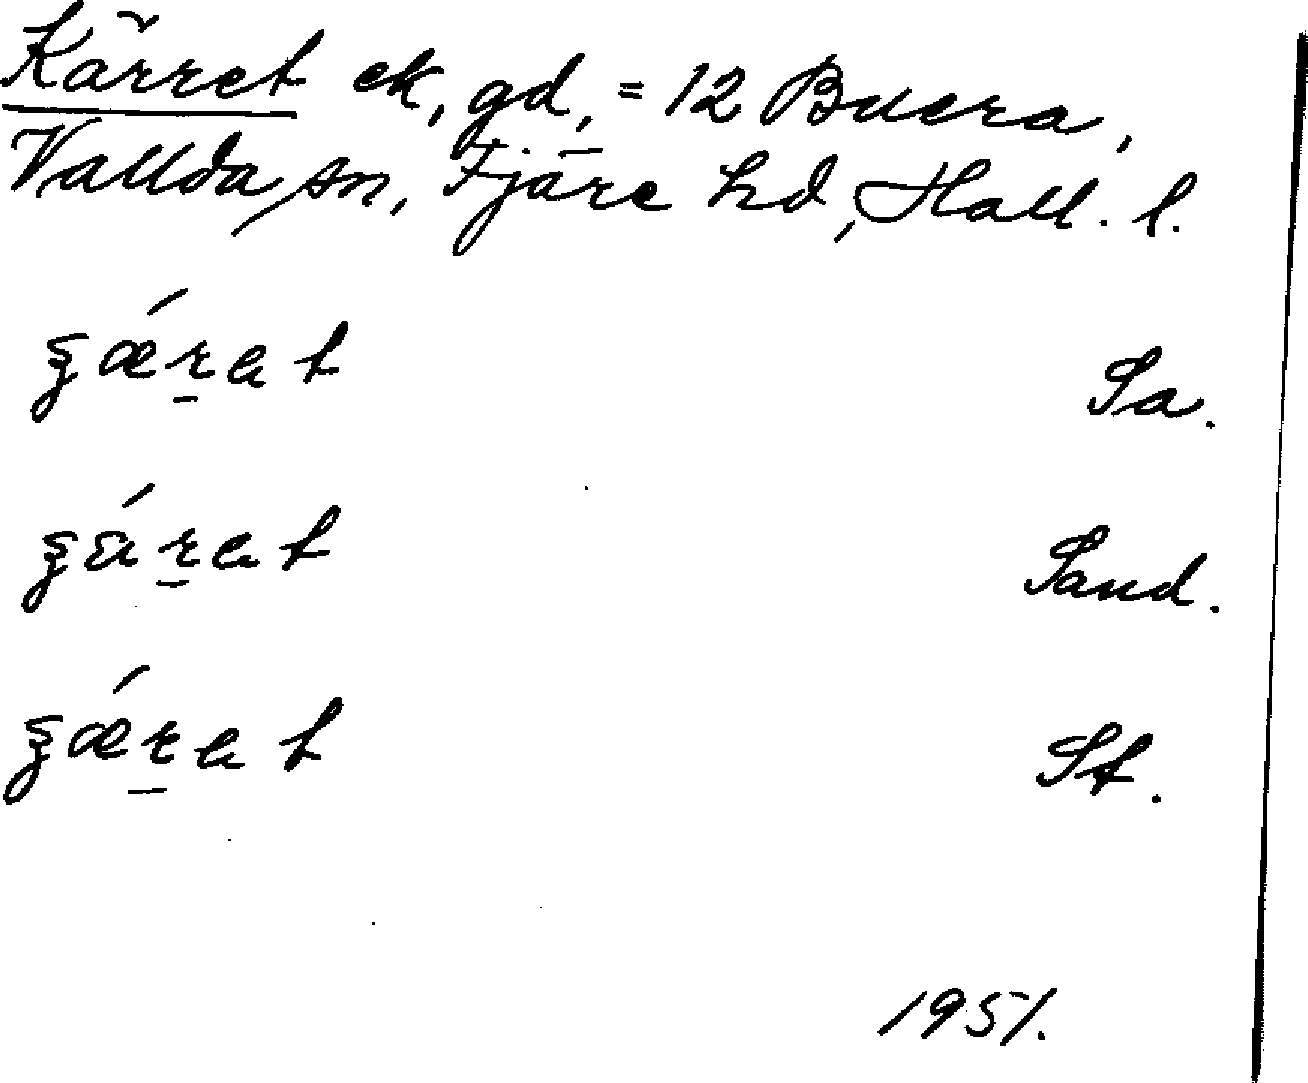 Kärret ek, gd, = 12 Buera,
Vallda sn, Fjäre hd, Hall. l.
ʂǽrət Sa.
ʂárət Sand.
ʂǽrət St.
1951.